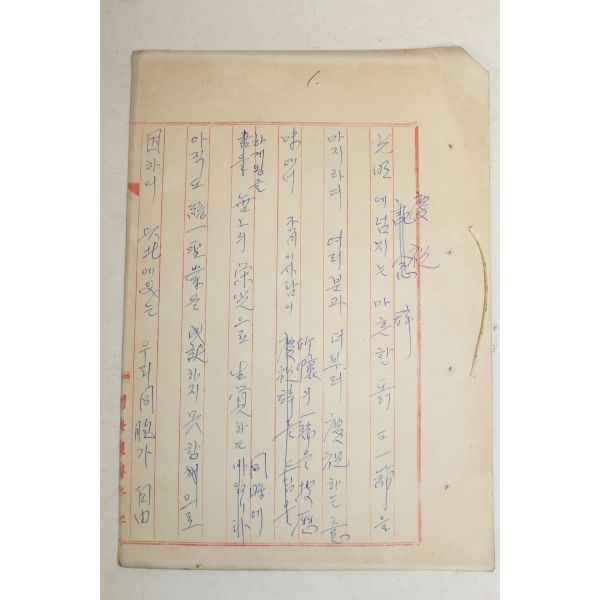 1.
慶祝
記念 辭
光明에넘치는 마흔한돐 三一節을
마지하여 여러분과 더부러 慶祝하는 意
味에서 이사람이 慶祝辭를 드림을
所懷의 一端을 披歷
하게됨을
無上의 榮光으로 生覺하는 바입니다
同時에
아직도 統一聖業을 成就하지 못함 으로
因하여 以北에있는 우리同胞가 自由